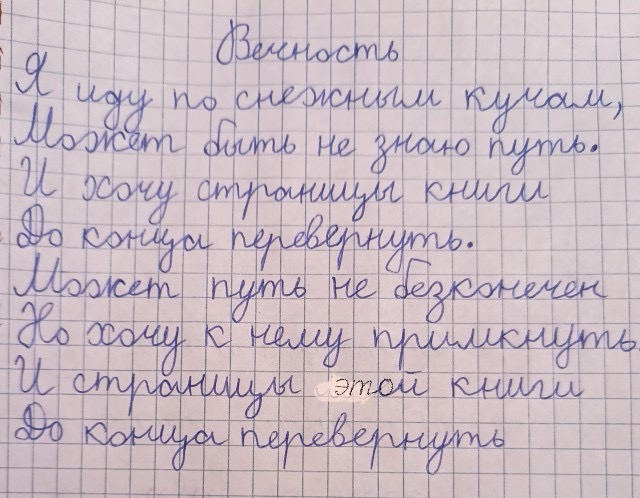 Вечность
Я иду по снежным кучам,
Может быть не знаю путь.
И хочу страницы книги
До конца перевернуть.
Может путь не безконечен
Но хочу к нему примкнуть
И страницы этой книги
До конца перевернуть